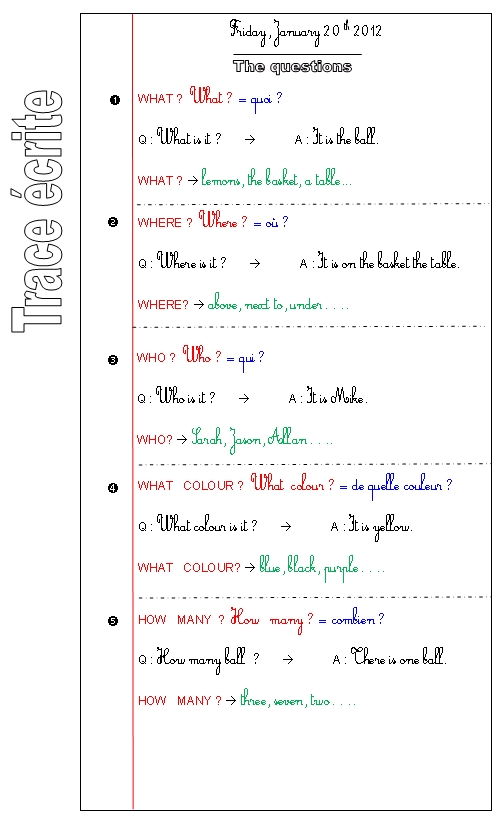 Trace écrite
Friday, January 20th 2012
The questions
❶ WHAT ? What ? = quoi ?
Q : What is it ? → A : It is the ball.
WHAT ? → lemons, the basket, a table...
❷ WHERE ? Where ? = où ?
Q : Where is it ? → A : It is on the basket the table.
WHERE? → above, next to, under . . . .
❸ WHO ? Who ? = qui ?
Q : Who is it ? → A : It is Mike.
WHO? → Sarah, Jason, Allan . . . .
❹ WHAT COLOUR ? What colour ? = de quelle couleur ?
Q : What colour is it ? → A : It is yellow.
WHAT COLOUR? → blue, black, purple . . . .
❺ HOW MANY ? How many ? = combien ?
Q : How many ball ? → A : There is one ball.
HOW MANY ? → three, seven, two . . . .